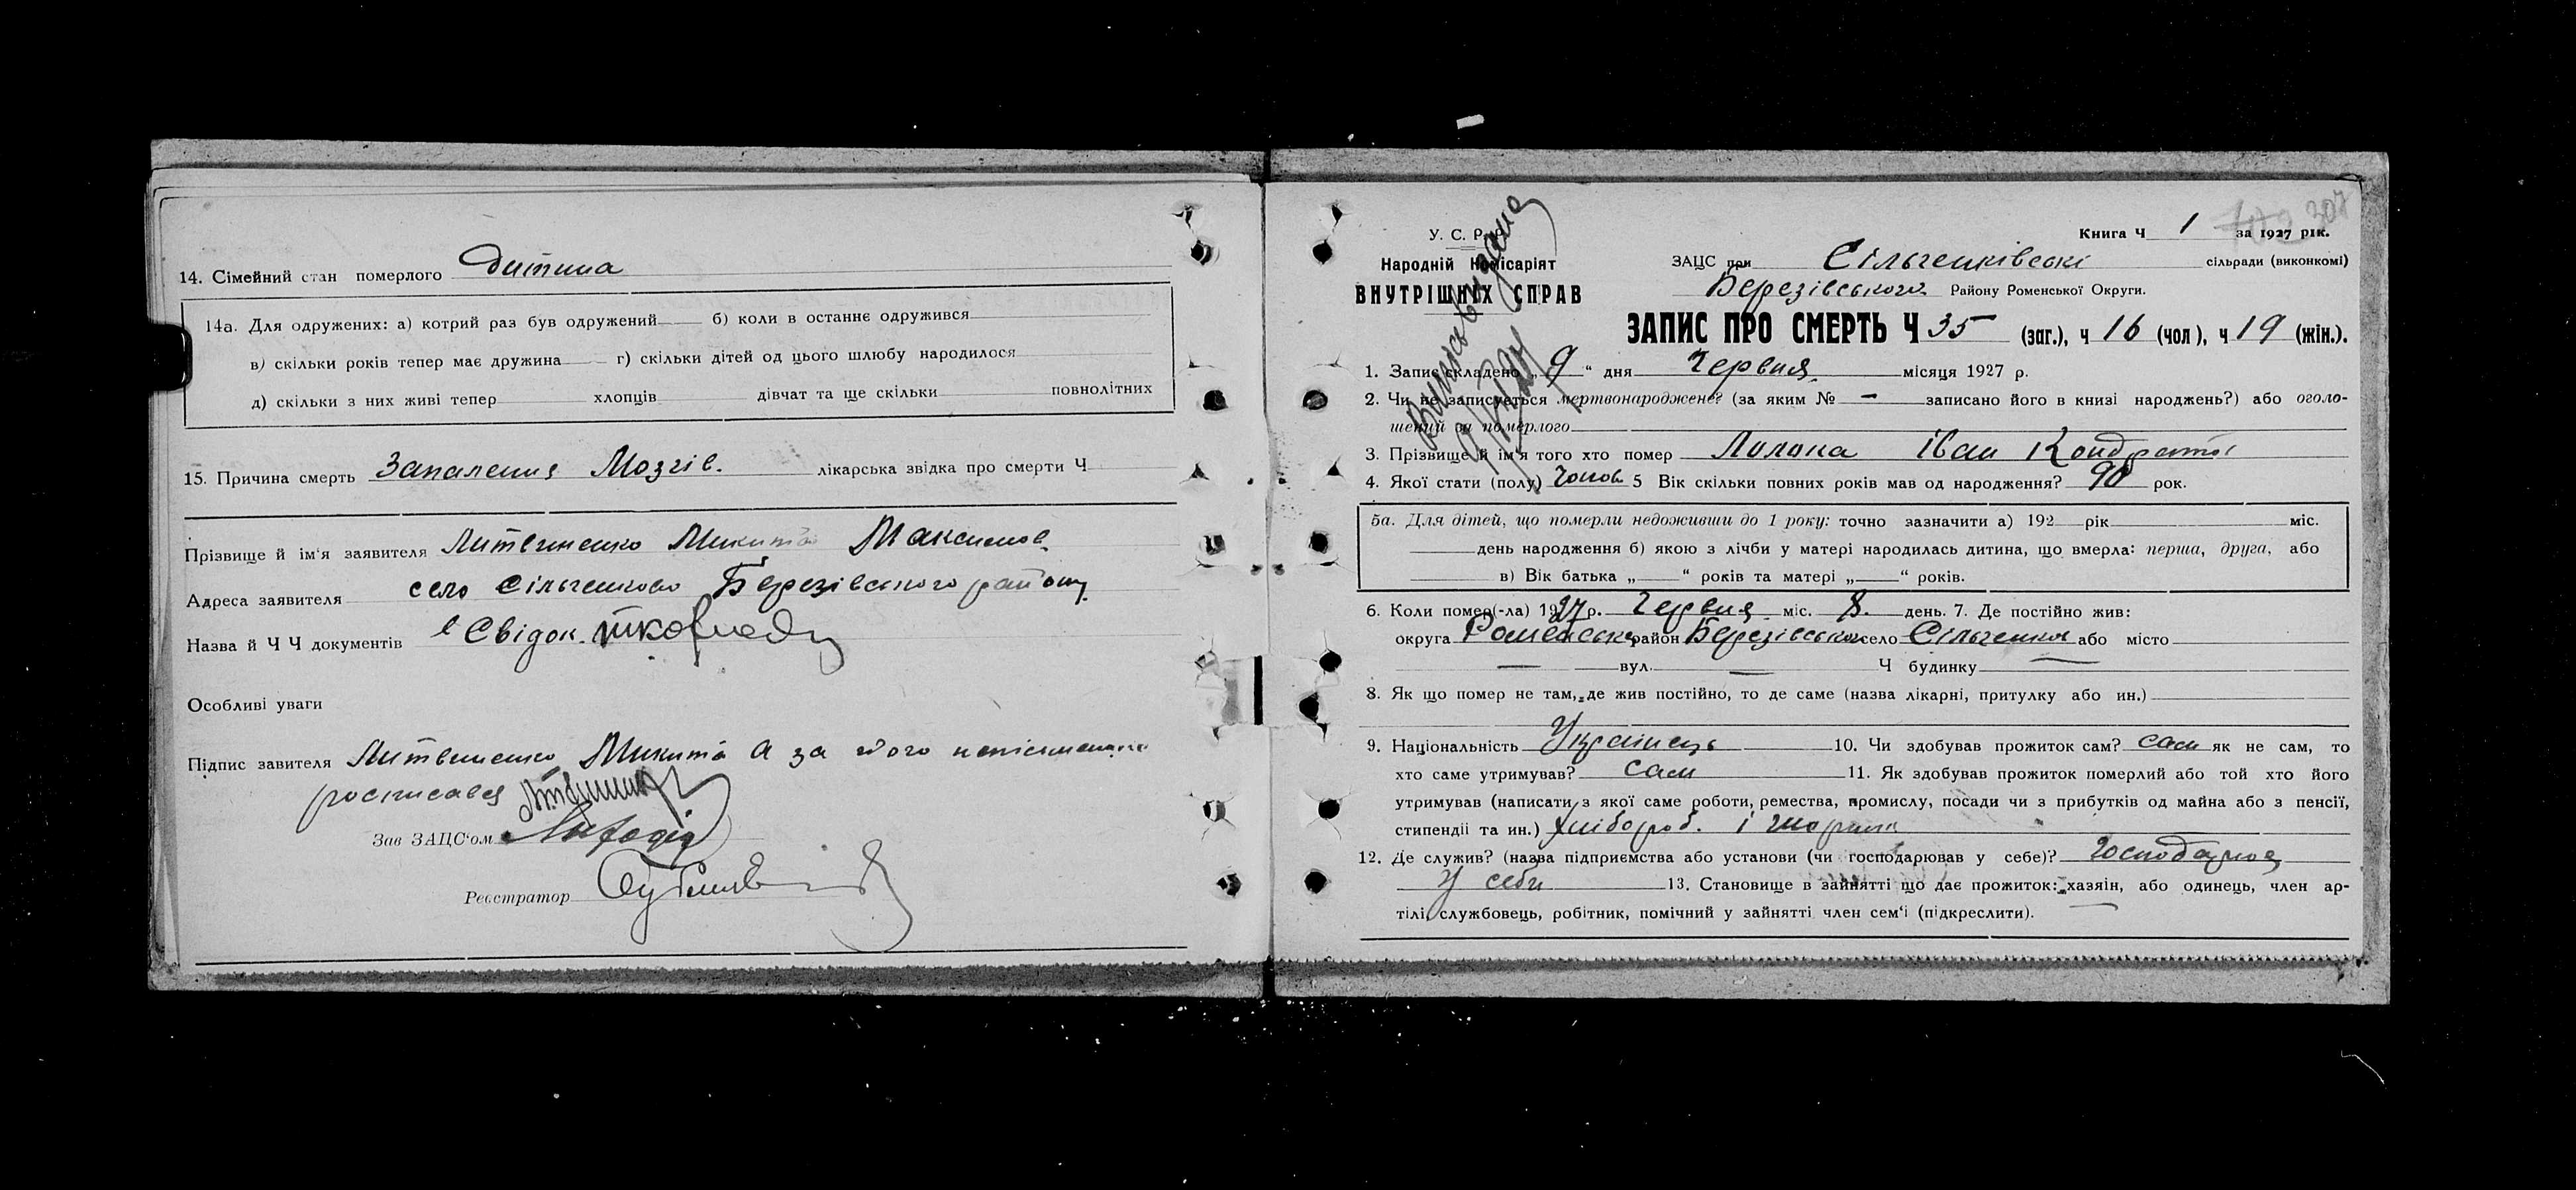 14. Сімейний стан померлого Дитина
14а. Для одружених: а) котрий раз був одружений б) коли в останнє одружився
в) скільки років тепер має дружина г) скільки дітей од цього шлюбу народилося
д) скільки з них живі тепер хлопців дівчат та ще скільки повнолітних
15. Причина смерть Запалення Мозгів. лікарська звідка про смерти Ч
Прізвище й ім‘я заявителя Литвиненко Микита Максимов.
Адреса заявителя село Сільченково Березівського району
Назва й Ч Ч документів Свідок.
Особливі уваги
Підпис завителя Литвиненко Микита а за його неписьменого
росписався
Зав ЗАЦС‘ом
Реєстратор
307
Книга Ч 1 за 1927 рік.
У. С. Р. Р.
Народній Комісаріят
ВНУТРІШНІХ СПРАВ
ЗАЦС при Сільченківські сільради (виконкомі)
Березівського Району Роменської Округи.
ЗАПИС ПРО СМЕРТЬ Ч 35 (заг.), ч 16 (чол), ч 19 (жін.).
1. Запис складено „9“ дня Червня місяця 1927 р.
2. Чи не записується мертвонароджене? (за яким № — записано його в книзі народжень?) або оголо-
шений за померлого
3. Прізвище й ім‘я того хто помер Иван Кондратов
4. Якої стати (полу) Чолов 5 Вік скільки повних років мав од народження? 90 рок.
5а. Для дітей, що померли недоживши до 1 року: точно зазначити а) 192 рік міс.
день народження б) якою з лічби у матері народилась дитина, що вмерла: перша, друга, або
в) Вік батька „ “ років та матері „ “ років.
6. Коли помер(-ла) 1927 р. Червня міс. 8. день. 7. Де постійно жив:
округа Роменська район Березівський село Сільченков або місто
— вул. — Ч будинку —
8. Як що помер не там, де жив постійно, то де саме (назва лікарні, притулку або ин.)
9. Національність Українець 10. Чи здобував прожиток сам? сам як не сам, то
хто саме утримував? сам 11. Як здобував прожиток померлий або той хто його
утримував (написати з якої саме роботи, ремества, промислу, посади чи з прибутків од майна або з пенсії,
стипендії та ин.) хлібороб. і
12. Де служив? (назва підприємства або установи (чи господарював у себе)? Господарював
У себе 13. Становище в зайнятті що дає прожиток: хазяін, або одинець, член ар-
тілі, службовець, робітник, помічний у зайнятті член сем‘ї (підкреслити).